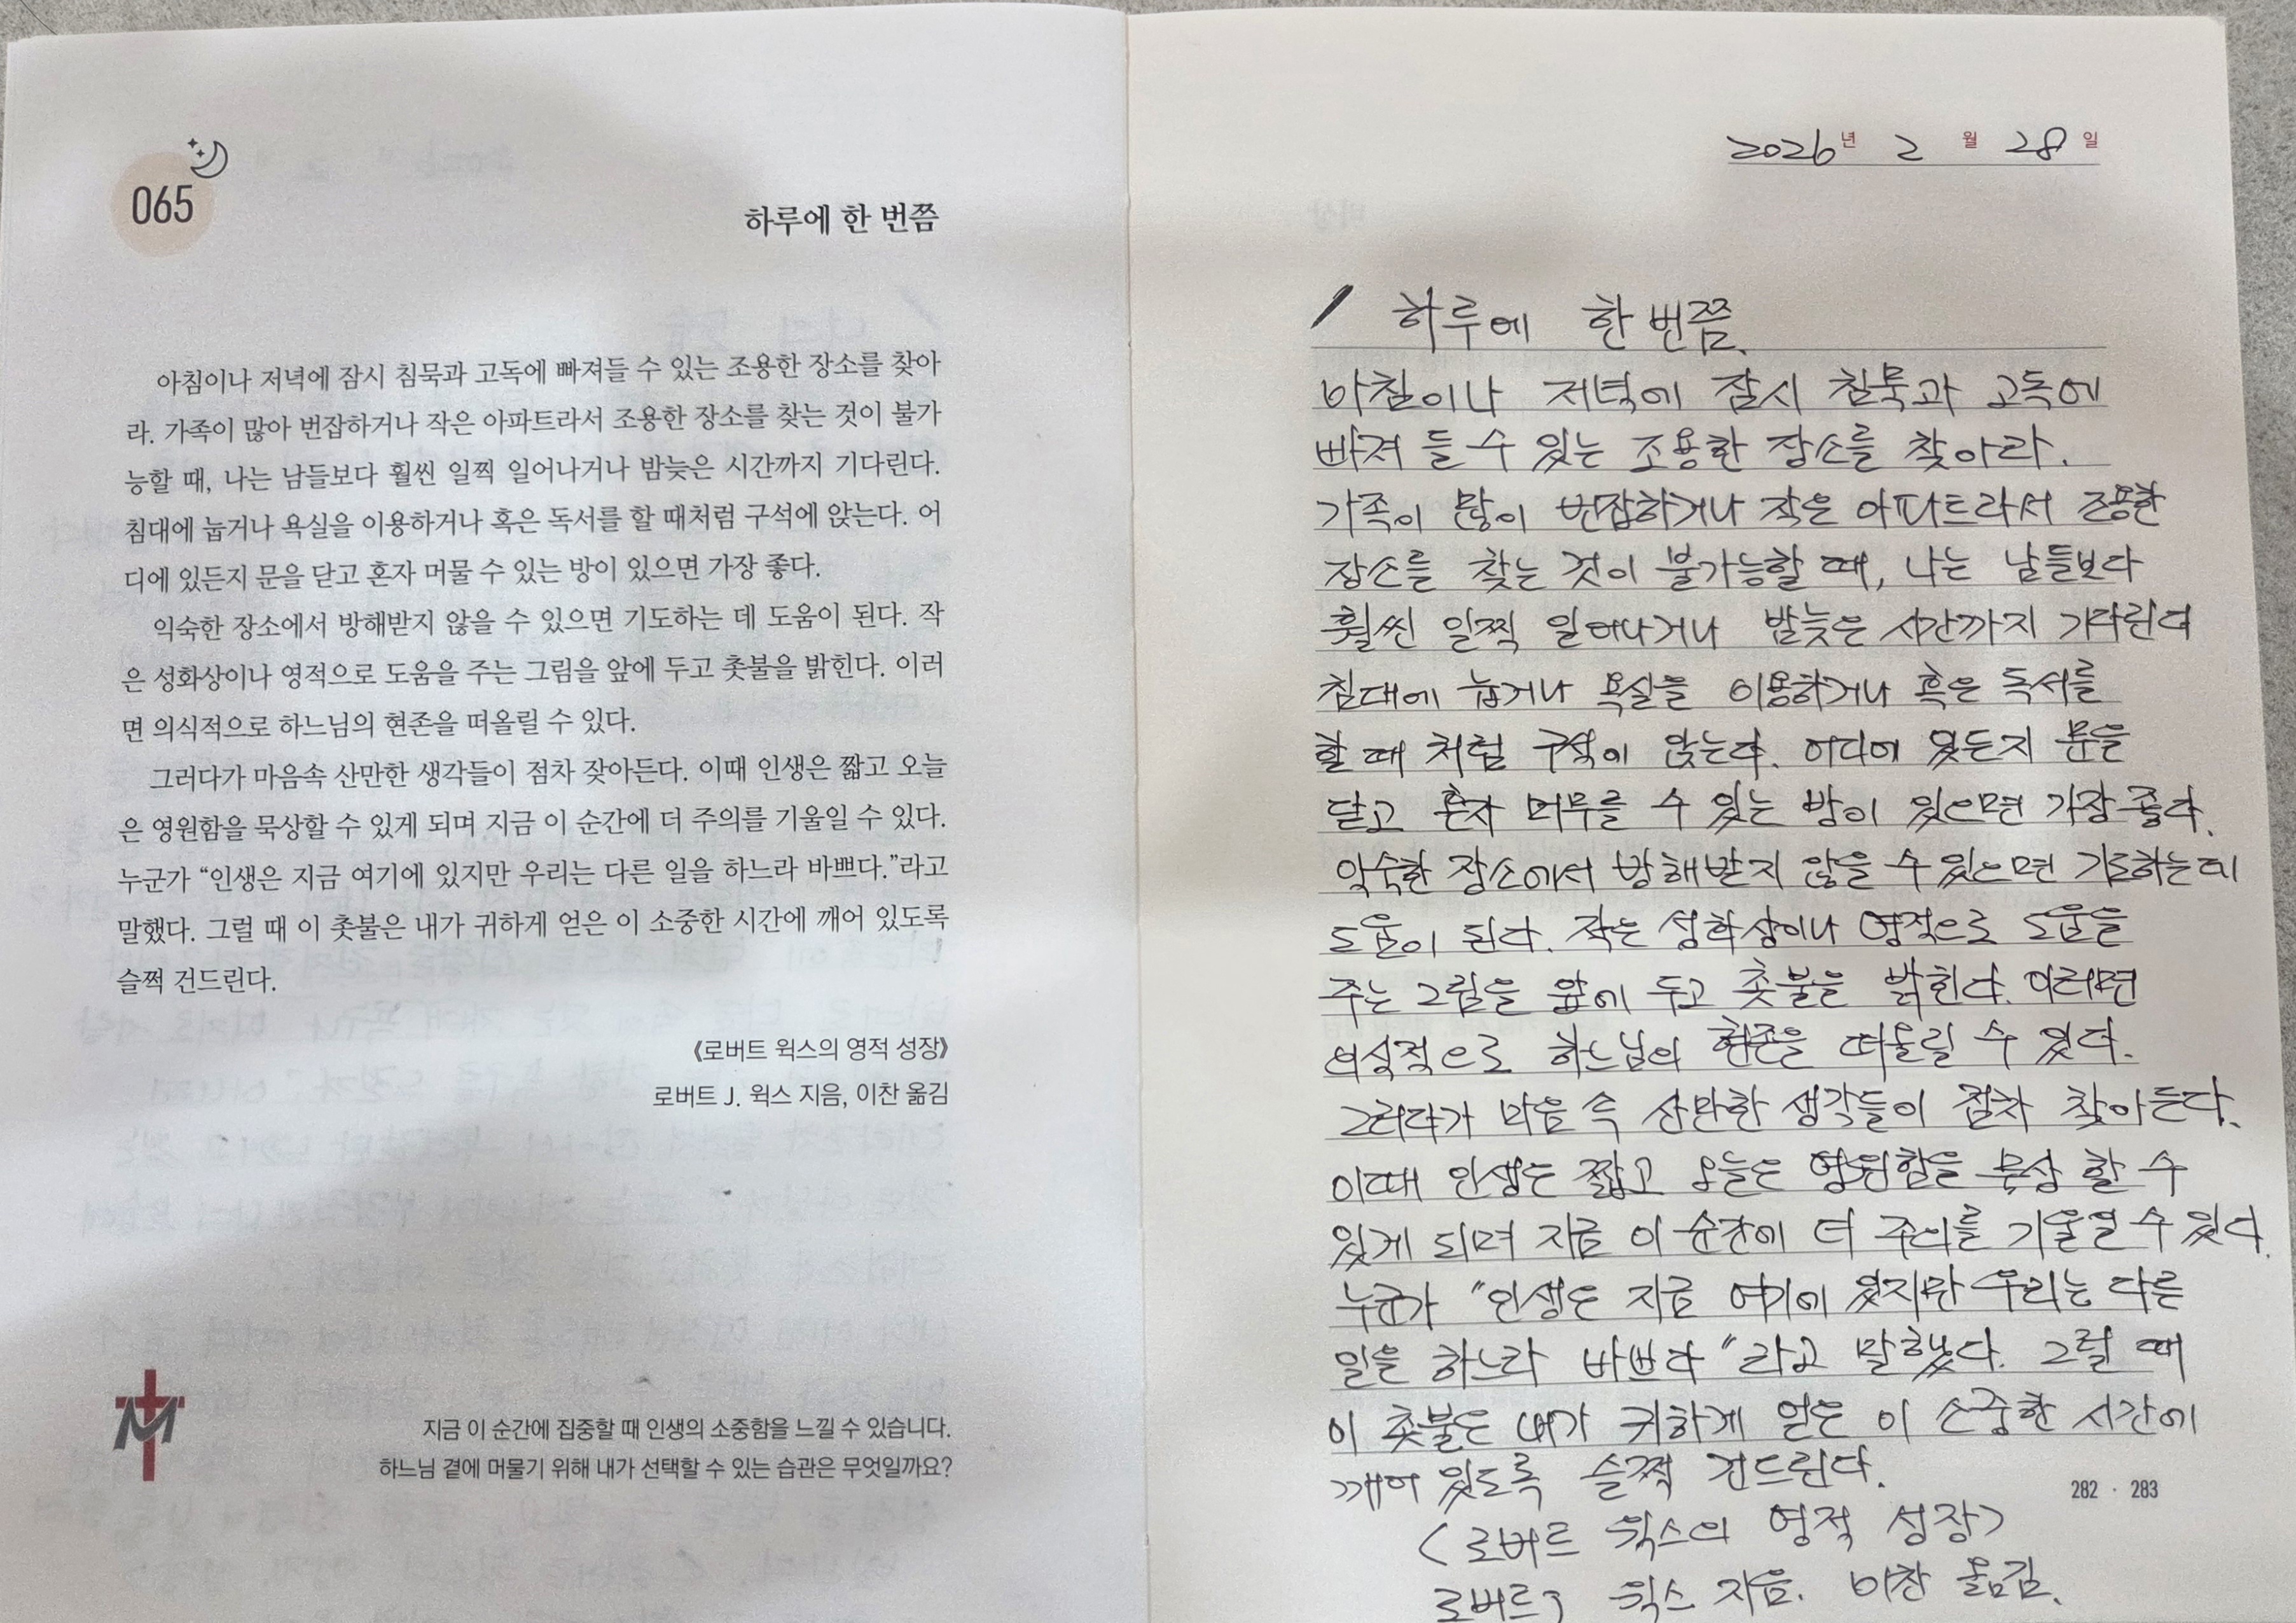 065
하루에 한 번쯤
아침이나 저녁에 잠시 침묵과 고독에 빠져들 수 있는 조용한 장소를 찾아
라. 가족이 많아 번잡하거나 작은 아파트라서 조용한 장소를 찾는 것이 불가
능할 때, 나는 남들보다 훨씬 일찍 일어나거나 밤늦은 시간까지 기다린다.
침대에 눕거나 욕실을 이용하거나 혹은 독서를 할 때처럼 구석에 앉는다. 어
디에 있든지 문을 닫고 혼자 머물 수 있는 방이 있으면 가장 좋다.
익숙한 장소에서 방해받지 않을 수 있으면 기도하는 데 도움이 된다. 작
은 성화상이나 영적으로 도움을 주는 그림을 앞에 두고 촛불을 밝힌다. 이러
면 의식적으로 하느님의 현존을 떠올릴 수 있다.
그러다가 마음속 산만한 생각들이 점차 잦아든다. 이때 인생은 짧고 오늘
은 영원함을 묵상할 수 있게 되며 지금 이 순간에 더 주의를 기울일 수 있다.
누군가 “인생은 지금 여기에 있지만 우리는 다른 일을 하느라 바쁘다.”라고
말했다. 그럴 때 이 촛불은 내가 귀하게 얻은 이 소중한 시간에 깨어 있도록
슬쩍 건드린다.
《로버트 윅스의 영적 성장》
로버트 J. 윅스 지음, 이찬 옮김
지금 이 순간에 집중할 때 인생의 소중함을 느낄 수 있습니다.
하느님 곁에 머물기 위해 내가 선택할 수 있는 습관은 무엇일까요?
2026년 2월 28일
하루에 한 번쯤.
아침이나 저녁에 잠시 침묵과 고독에
빠져 들 수 있는 조용한 장소를 찾아라.
가족이 많이 번잡하거나 작은 아파트라서 조용한
장소를 찾는 것이 불가능할 때, 나는 남들보다
훨씬 일찍 일어나거나 밤늦은 시간까지 기다린다
침대에 눕거나 욕실을 이용하거나 혹은 독서를
할 때 처럼 구석이 앉는다. 어디에 있든지 문을
닫고 혼자 머무를 수 있는 방이 있으면 가장 좋다.
익숙한 장소에서 방해받지 않을 수 있으면 기도하는데
도움이 된다. 작은 성화상이나 영적으로 도움을
주는 그림을 앞에 두고 촛불을 밝힌다. 이러면
의식적으로 하느님의 현존을 떠올릴 수 있다.
그러다가 마음 속 산만한 생각들이 점차 찾아든다.
이때 인생은 짧고 오늘은 영원함을 묵상 할 수
있게 되며 지금 이 순간에 더 주의를 기울일 수 있다.
누군가 "인생은 지금 여기에 있지만 우리는 다른
일을 하느라 바쁘다"라고 말했다. 그럴 때
이 촛불은 내가 귀하게 얻은 이 소중한 시간에
깨어 있도록 슬쩍 건드린다.
<로버트 윅스의 영적 성장>
로버트 J 윅스 지음. 이찬 옮김.
282 · 283